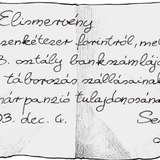 Elismervény
senkétezer forintról, mel
3. osztály bankszámlájá
táborozás szállásainak
nár panzió tulajdonosána
03. dec. 4.
Se